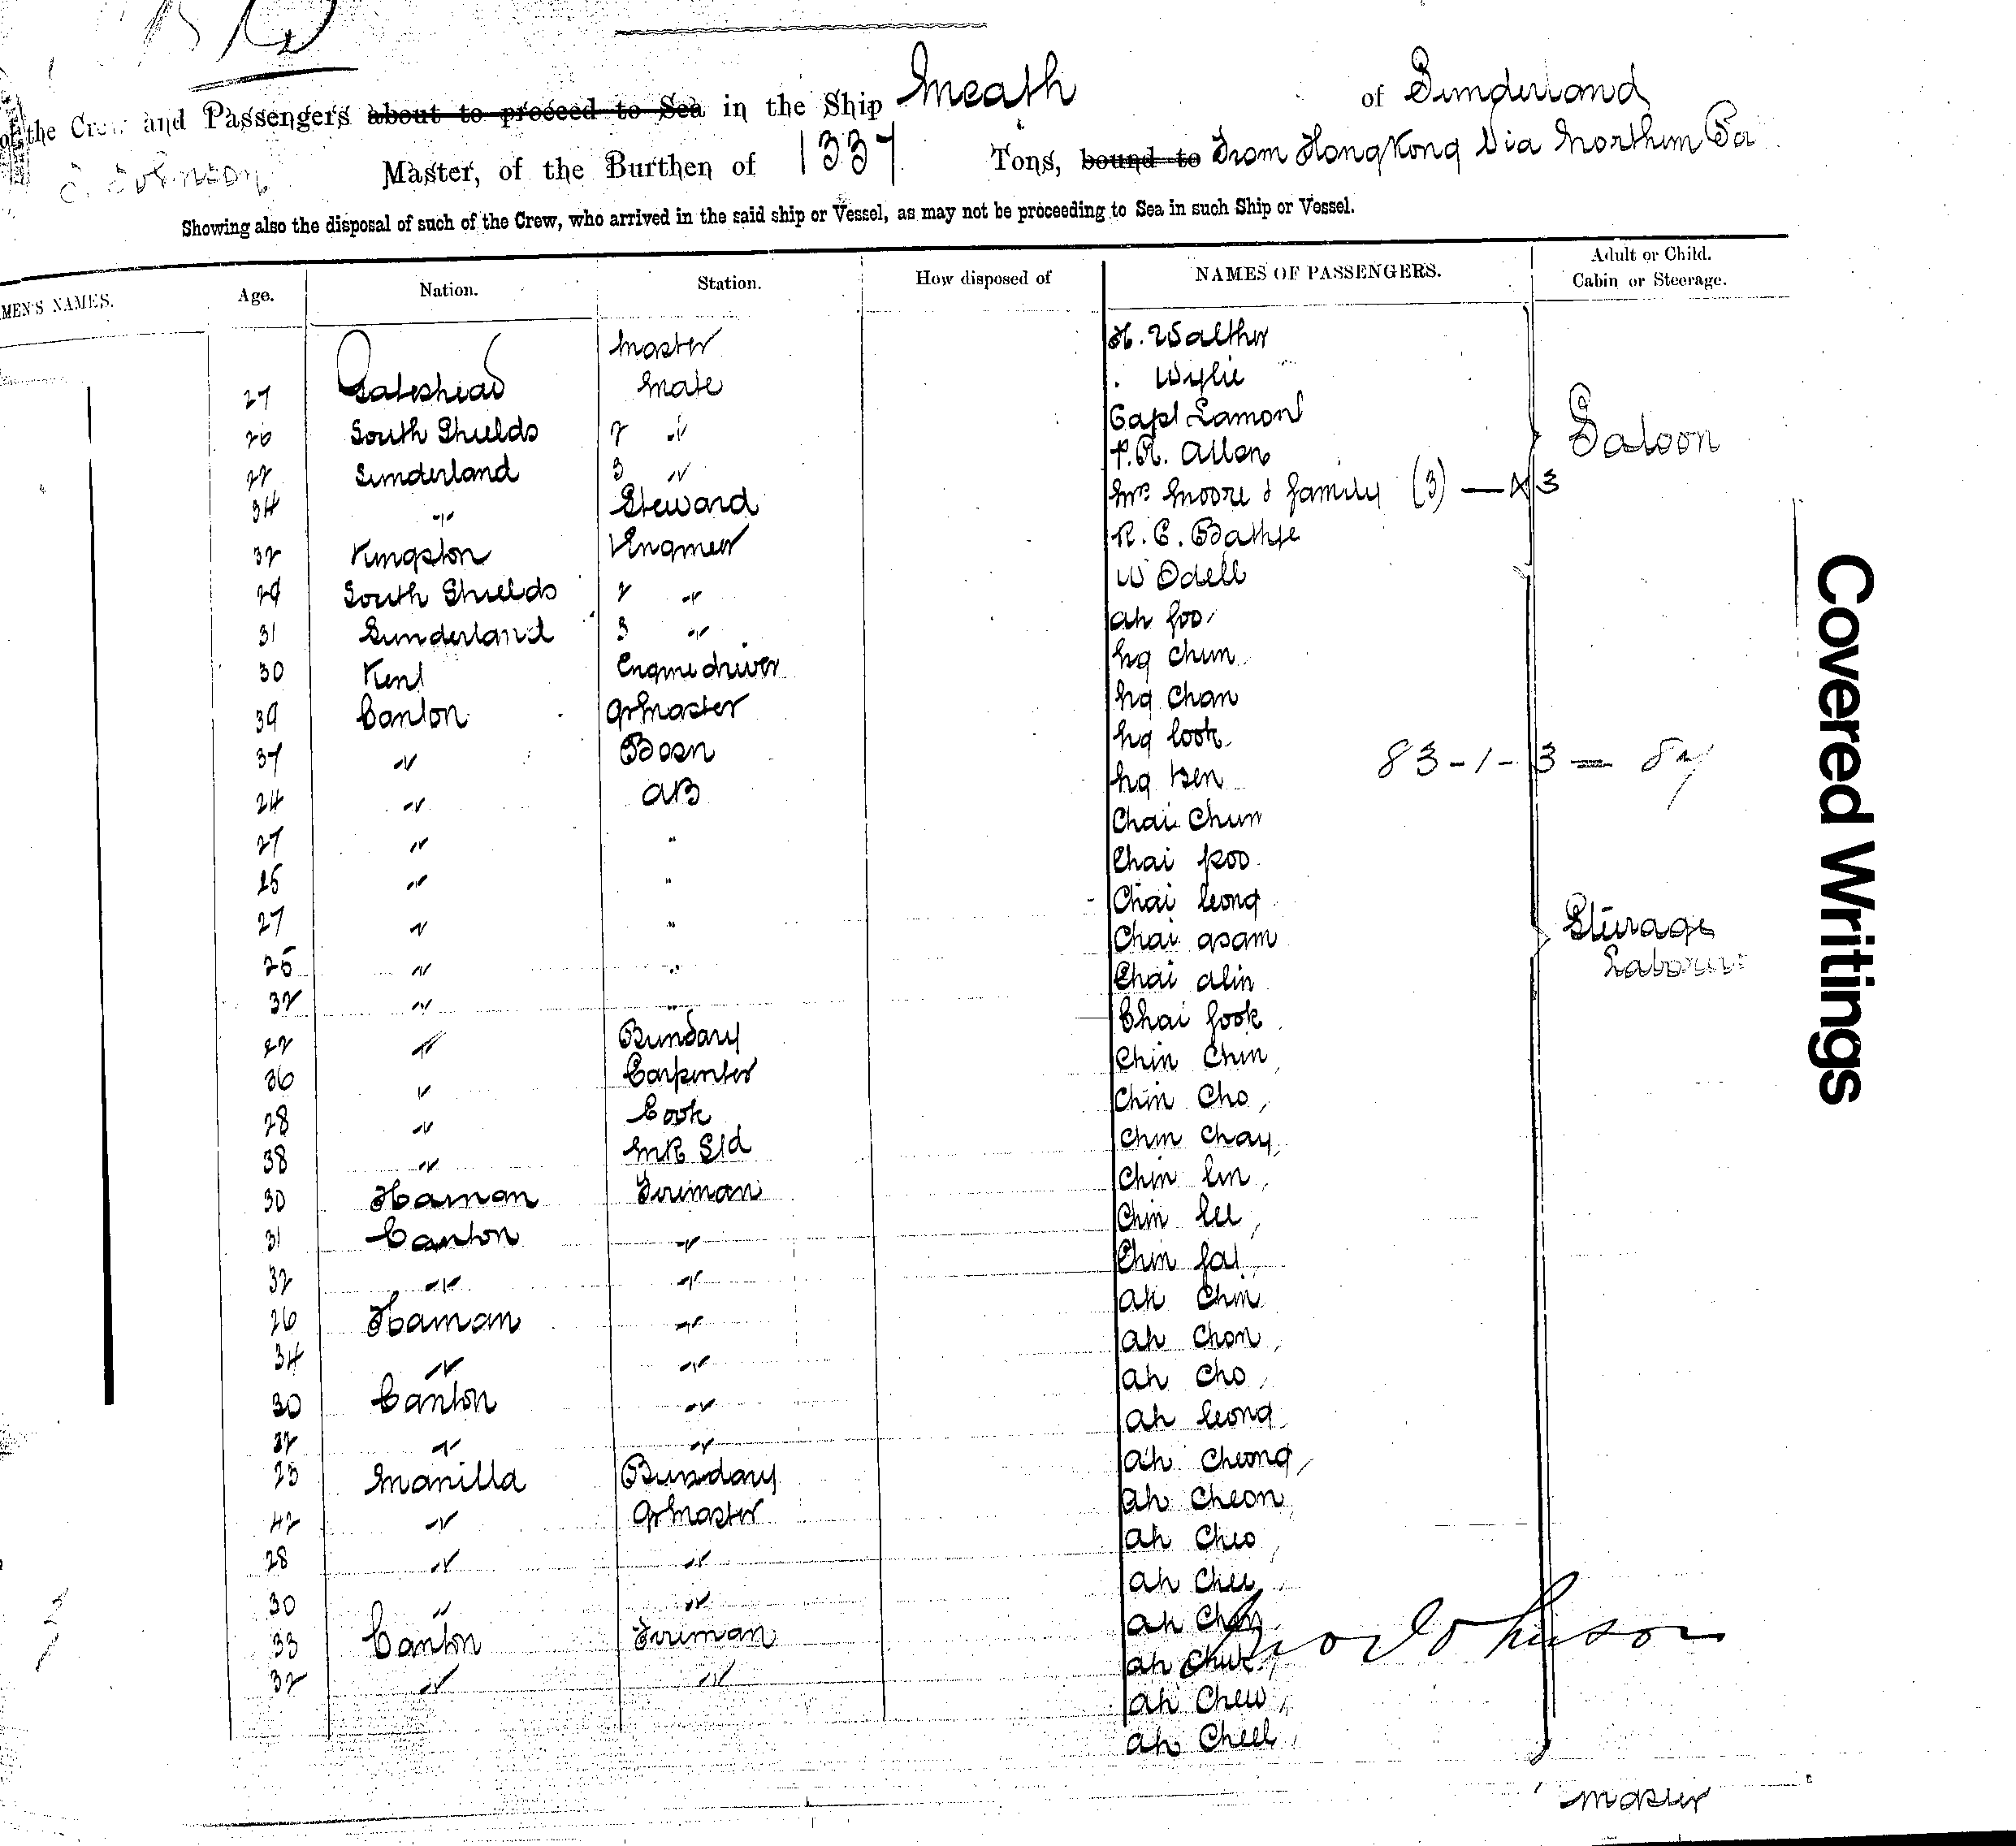 of the Crew and Passengers about to proceed to Sea in the Ship Meath of Sunderland
Johnson Master, of the Burthen of 1337 Tons, bound to From HongKong Via Northern
Showing also the disposal of such of the Crew, who arrived in the said ship or Vessel, as may not be proceeding to Sea in such Ship or Vessel.
MEN'S NAMES. Age. Nation. Station. How disposed of NAMES OF PASSENGERS. Adult or Child. Cabin or Steerage.
Master H. Walther
27 Gateshead Mate Wylie
26 South Shields 2 " Capt Lamont Saloon
22 Sunderland 3 " P.R. Allen
34 " Steward Mrs Moore & family (3) — 3
32 Kingston 1 Engineer R. C.
29 South Shields 2 " W Odell
31 Sunderland 3 " Ah Foo
30 Kent Enginedriver Ng Chun
39 Canton QrMaster Ng Chan
37 " Bosn Ng Cook 83-1-3 =
24 " AB Ng
27 " " Chai Chun
25 " " Chai Poo
27 " " Chai Leong
25 " " Chai Asam Steerage
32 " " Chai Alin
22 " Bundary Chai Fook
36 " Carpenter Chin Chin
28 " Cook Chin Cho
38 " Chin Chay
30 Hainan Fireman Chin Lin
31 Canton " Chin Lee
32 " " Chin Fat
26 Hainan " Ah Chin
34 " " Ah Chon
30 Canton " Ah Cho
32 " " Ah Leong
23 Manilla Bunday Ah Cheong
42 " QrMaster Ah Cheon
28 " " Ah Cheo
30 " " Ah Chee
33 Canton Fireman Ah
32 " " Ah Johnson
Ah Chew
Ah Cheel
Master
Covered Writings